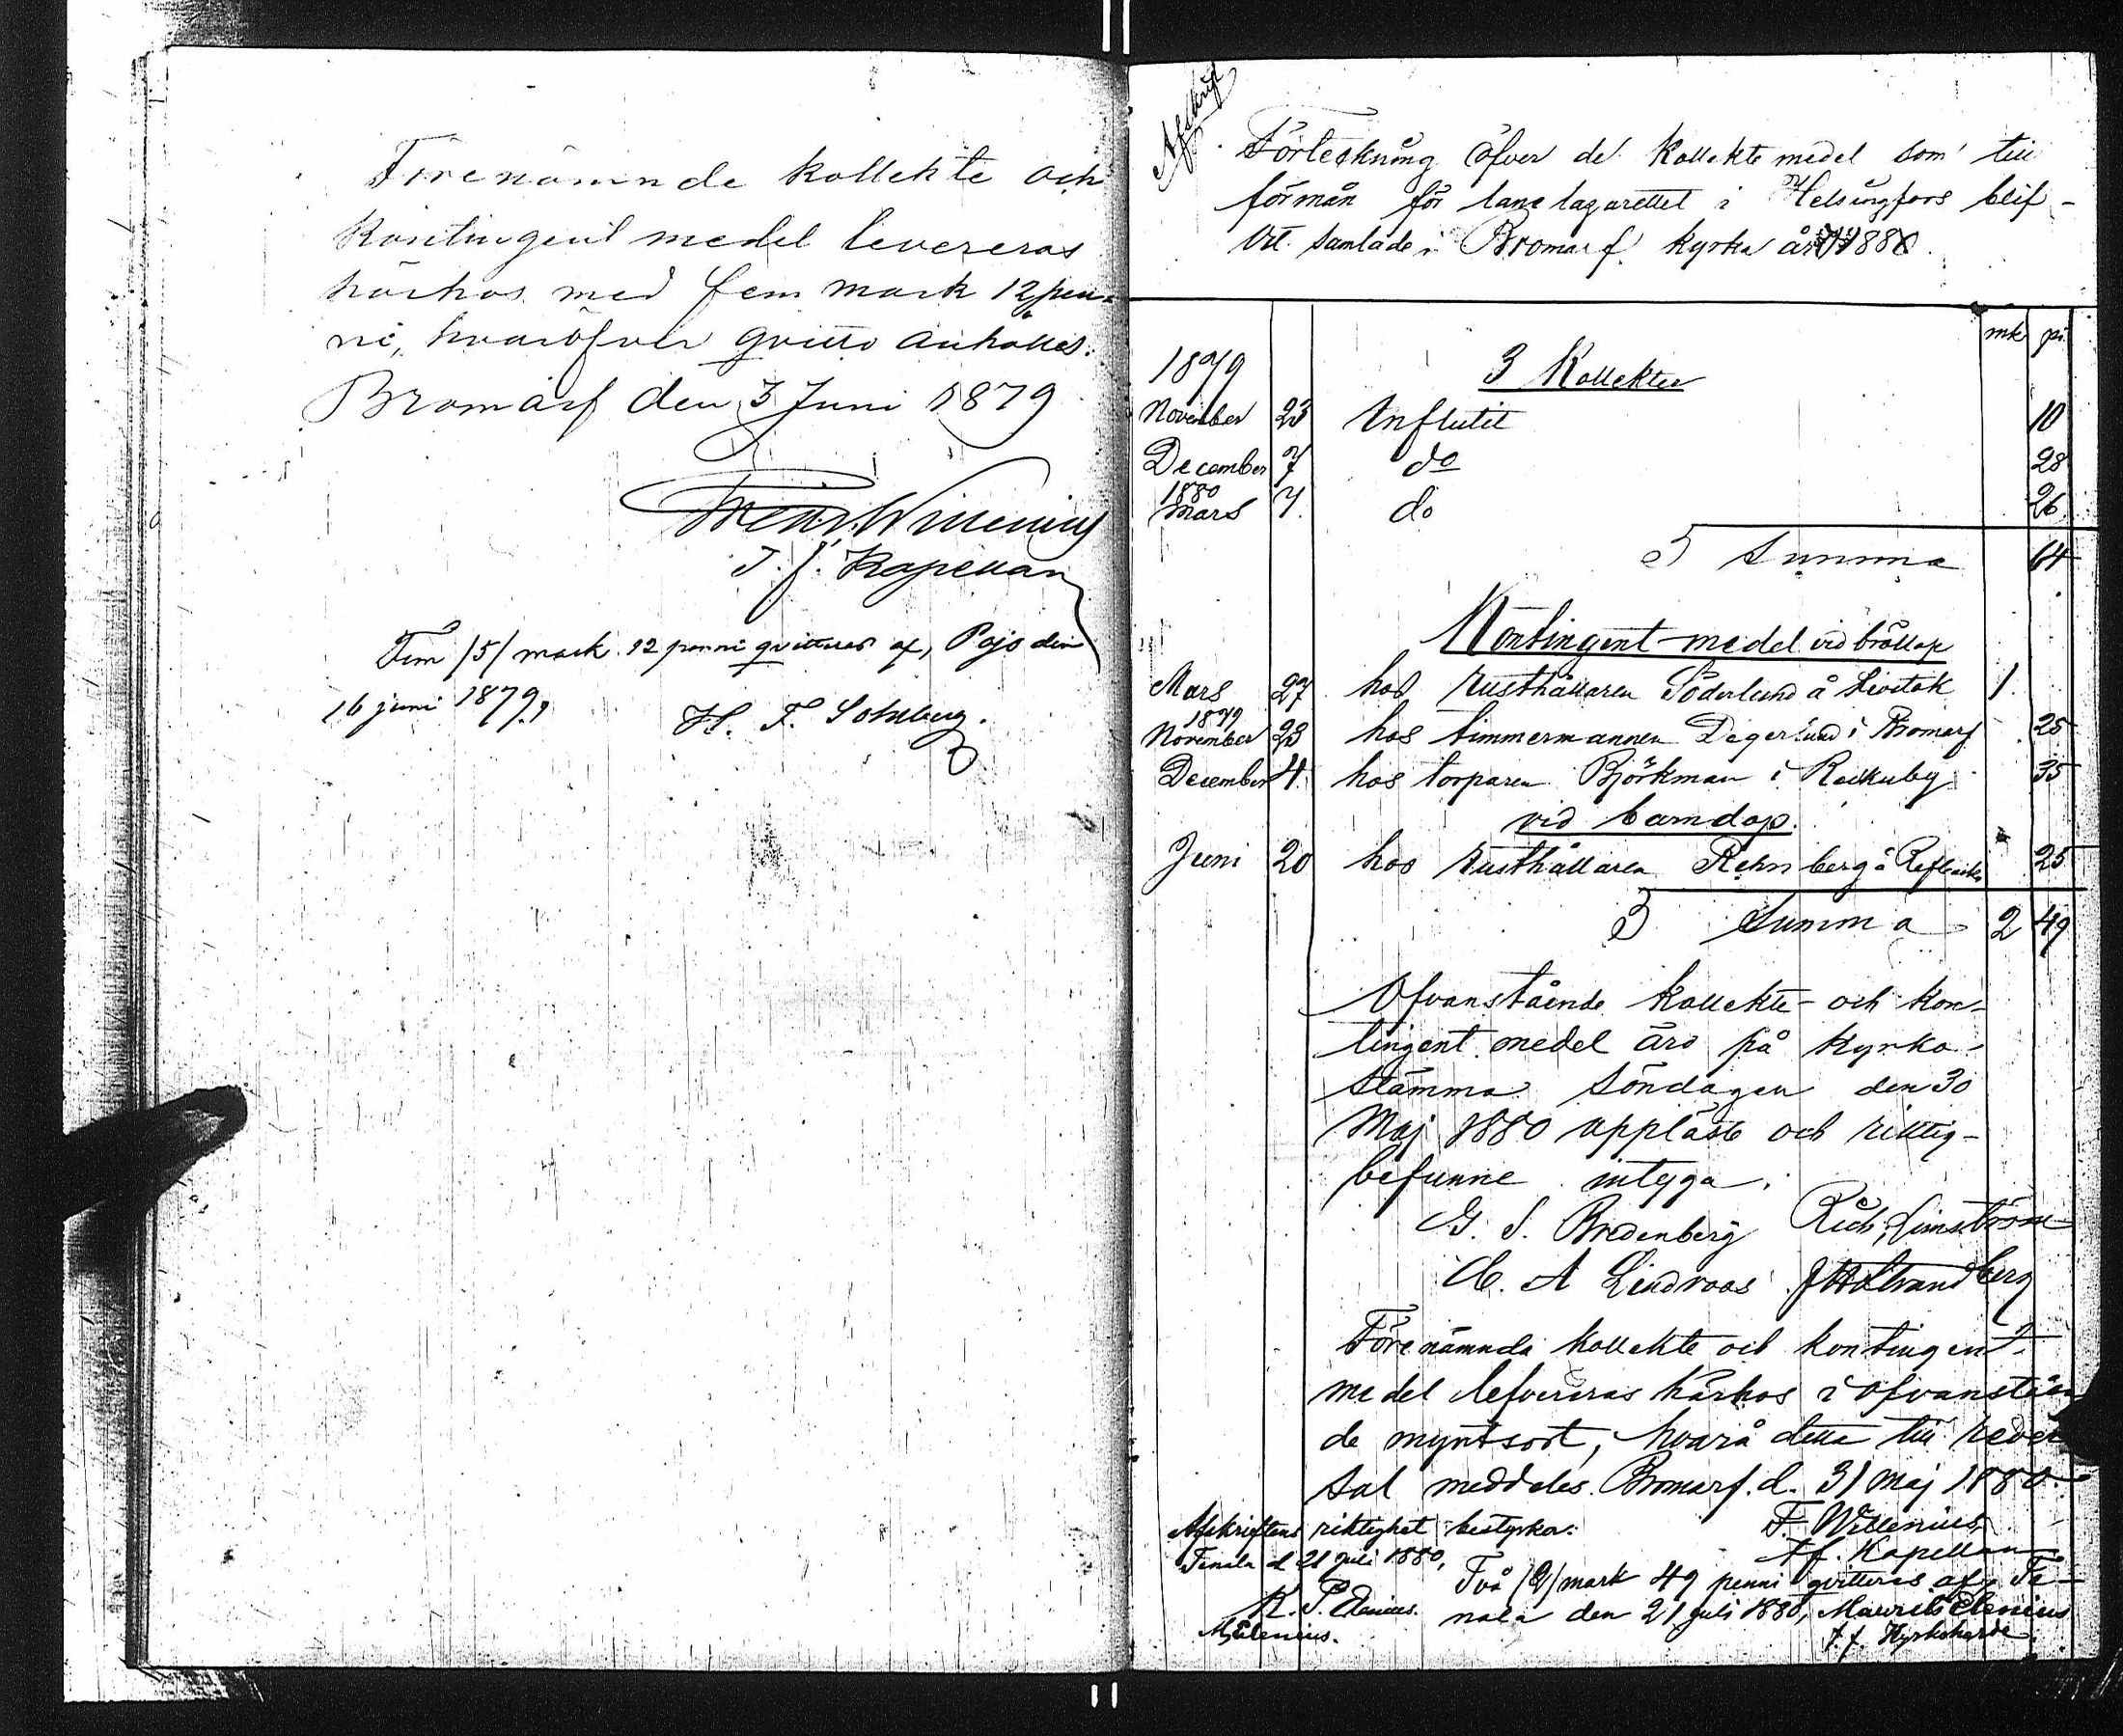 Förenämnde kollekte och
kontingent medel levereras
härhos med fem mark 12 pen-
ni, hvaröfver qvitto anhålles.
Bromarf den 3 Juni 1879
Willenius
T. f. Kapellan
Fem /5/ mark 12 penni qvitteras af, Pojo den
16 juni 1879,
H. F. Sohlberg.
Afskrift
Förteckning öfver de Kollekte medel som till
förmån för lans lazarettet i Helsingfors blif-
vit samlade i Bromarf kyrka år 1880.
mk pi.
1879 3 Kollekter
November 23 Influtit 10
December 7 do 28
1880
Mars 7. do 26
Summa 64
Kontingent-medel vid bröllop
Mars 27 hos rusthållaren Söderlund å 1.
1879
November 23 hos timmermannen Degerlund i Bromarf 25
December 4. hos torparen Björkman i 35
vid barndop.
Juni 20 hos rusthållaren Rehnberg å 25
Summa 2 49
Ofvanstående kollekte- och kon-
tingent medel äro på kyrko-
stämma söndagen den 30
Maj 1880 uppläste och riktig-
befunne intyga.
G. S. Bredenberg
C. A Lindroos Strandberg
Förenämnda kollekte och kontingent-
medel lefvereras härhos i ofvanståen
de myntsort, hvarå detta till rever
sal meddeles. Bromarf. d. 31 Maj 1880.
Afskriftens riktighet bestyrka: F. Willenius
Tenala d 21 juli 1880, t f. Kapellan
Två /2/ mark 49 penni qvitteras af, Te-
K. P. nala den 21 juli 1880, Maurits
t. f. Kyrkoherde.